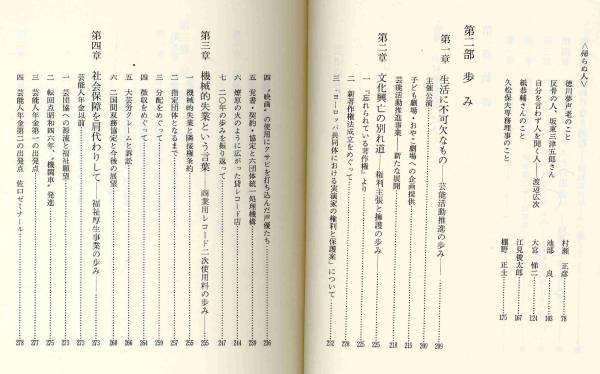 〈帰らぬ人〉
徳川夢声老のこと 村瀬 正彦 78
反骨の人、坂東三津五郎さん 池部 良 103
自分を言わず人を聞く人――渡辺広次 大宮 悌二 124
紙恭輔さんのこと 江見俊太郎 167
久松保夫専務理事のこと 棚野 正士 175
第二部 歩 み
第一章 生活に不可欠なもの――芸能活動推進の歩み―― 209
主催公演 209
子ども劇場・おやこ劇場への企画提供 215
芸能活動推進事業――新たな展開 218
第二章 文化興亡の別れ道――権利主張と擁護の歩み
一 『忘れられている著作権』より
二 新著作権法成立をめぐって 228
三 『ヨーロッパ共同体における実演家の権利と保護案』について 232
四 〝映画〟の使用にクサビを打ち込んだ声優たち 236
五 覚書・契約・協定と六団体統一処理機構 239
六 燎原の火のように広がった貸レコード店 244
七 二〇年の歩みを振り返って 247
第三章 機械的失業という言葉――商業用レコード二次使用料の歩み― 255
一 機械的失業と隣接権条約 255
二 指定団体となるまで 257
三 分配をめぐって 259
四 徴収をめぐって 264
五 大芸労クレームと訴訟 266
六 二国間双務協定と今後の展望 268
第四章 社会保障を肩代わりして――福祉厚生事業の歩み―― 273
芸能人年金以前 273
一 芸団協への源流と福祉願望 273
二 転回点昭和四六年、〝機関車〟発進 275
三 芸能人年金第一の出発点 277
四 芸能人年金第二の出発点 佐口ゼミナール 278